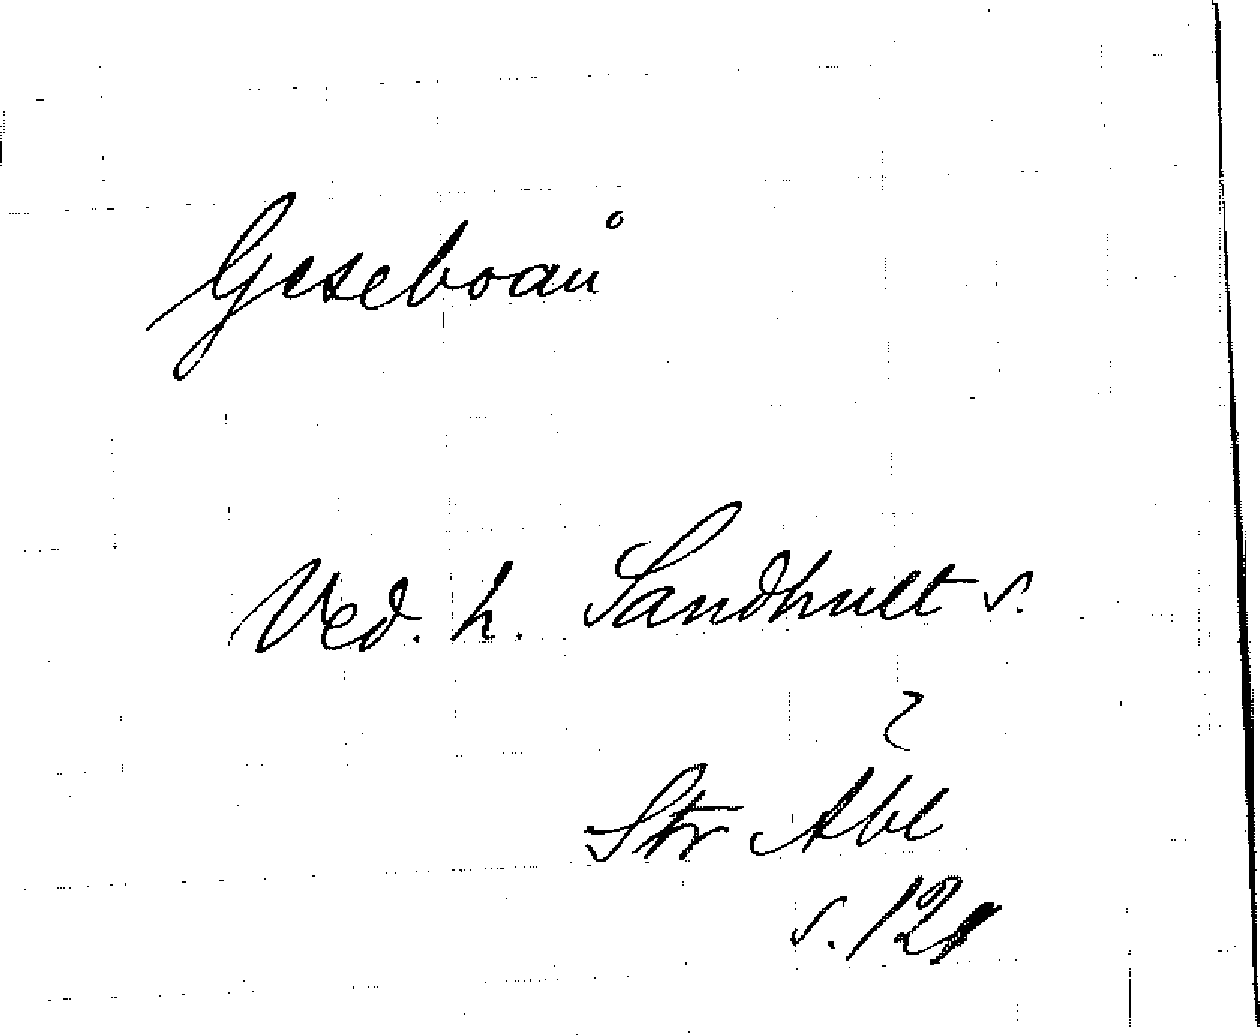 Geseboån
Ved. h. Sandhult s.
Str Abl
s. 121